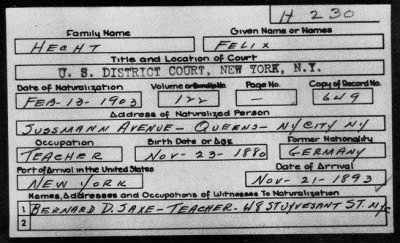 H 230
Family Name Given Name or Names
HECHT FELIX
Title and Location of Court
U. S. DISTRICT COURT, NEW YORK, N.Y.
Date of Naturalization Volume or Bundle No. Page No. Copy of Record No.
FEB-13-1903 122 — 649
Address of Naturalized Person
JUSSMANN AVENUE - QUEENS - NY CITY NY
Occupation Birth Date or Age Former Nationality
TEACHER NOV-23-1880 GERMANY
Port of Arrival in the United States Date of Arrival
NEW YORK NOV-21-1893 ✓
Names, Addresses and Occupations of Witnesses To Naturalization
1 BERNARD D. SAXE-TEACHER-48 STUYVESANT ST. NYC
2